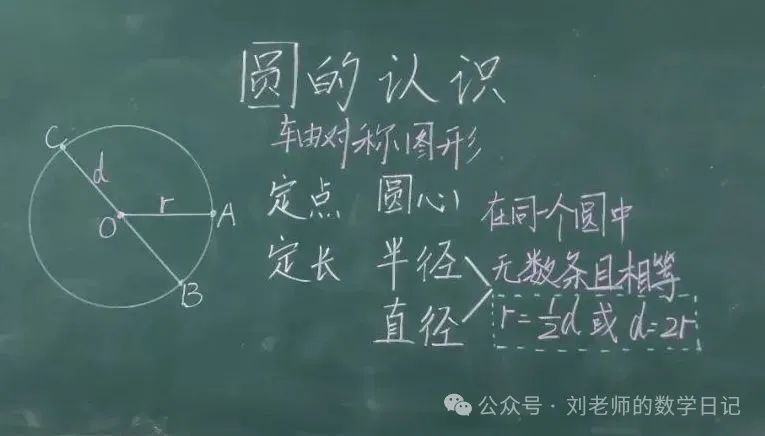 圆的认识
轴对称图形
C
d
r
O
A
B
定点 圆心
定长 半径
直径
在同一个圆中
无数条且相等
r=½d 或 d=2r
公众号·刘老师的数学日记